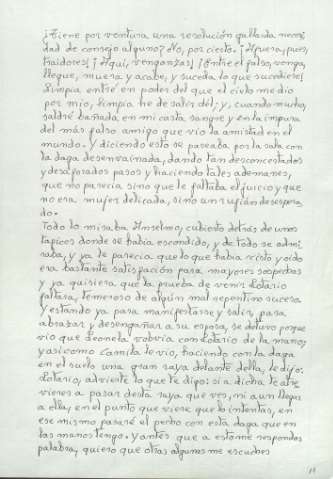 ¿Tiene por ventura una resolución gallarda necesi
dad de consejo alguno? No, por cierto. ¡Afuera, pues,
traidores! ¡Aquí, venganzas! ¡Entre el falso, venga,
llegue, muera y acabe, y suceda lo que sucediere!
Limpia entré en poder del que el cielo me dió
por mío, limpia he de salir dél; y, cuando mucho,
saldré bañada en mi casta sangre y en la impura
del más falso amigo que vio la amistad en el
mundo. Y diciendo esto se paseaba por la sala con
la daga desenvainada, dando tan desconcertados
y desaforados pasos y haciendo tales ademanes,
que no parecía sino que le faltaba el juicio y que
no era mujer delicada, sino un rufián desespera
do.
Todo lo miraba Anselmo, cubierto detrás de unos
tapices donde se había escondido, y de todo se admi
raba, y ya le parecía que lo que había visto y oído
era bastante satisfación para mayores sospechas
y ya quisiera que la prueba de venir Lotario
faltara, temeroso de algún mal repentino suceso
Y estando ya para manifestarse y salir, para
abrazar y desengañar a su esposa, se detuvo porque
vio que Leonela volvía con Lotario de la mano;
y así como Camila le vio, haciendo con la daga
en el suelo una gran raya delante della, le dijo:
Lotario, advierte lo que te digo: si a dicha te atre
vieres a pasar desta raya que ves, ni aun llegar
a ella, en el punto que viere que lo intentas, en
ese mismo pasaré el pecho con esta daga que en
las manos tengo. Y antes que a esto me respondas
palabra, quiero que otras algunas me escuches